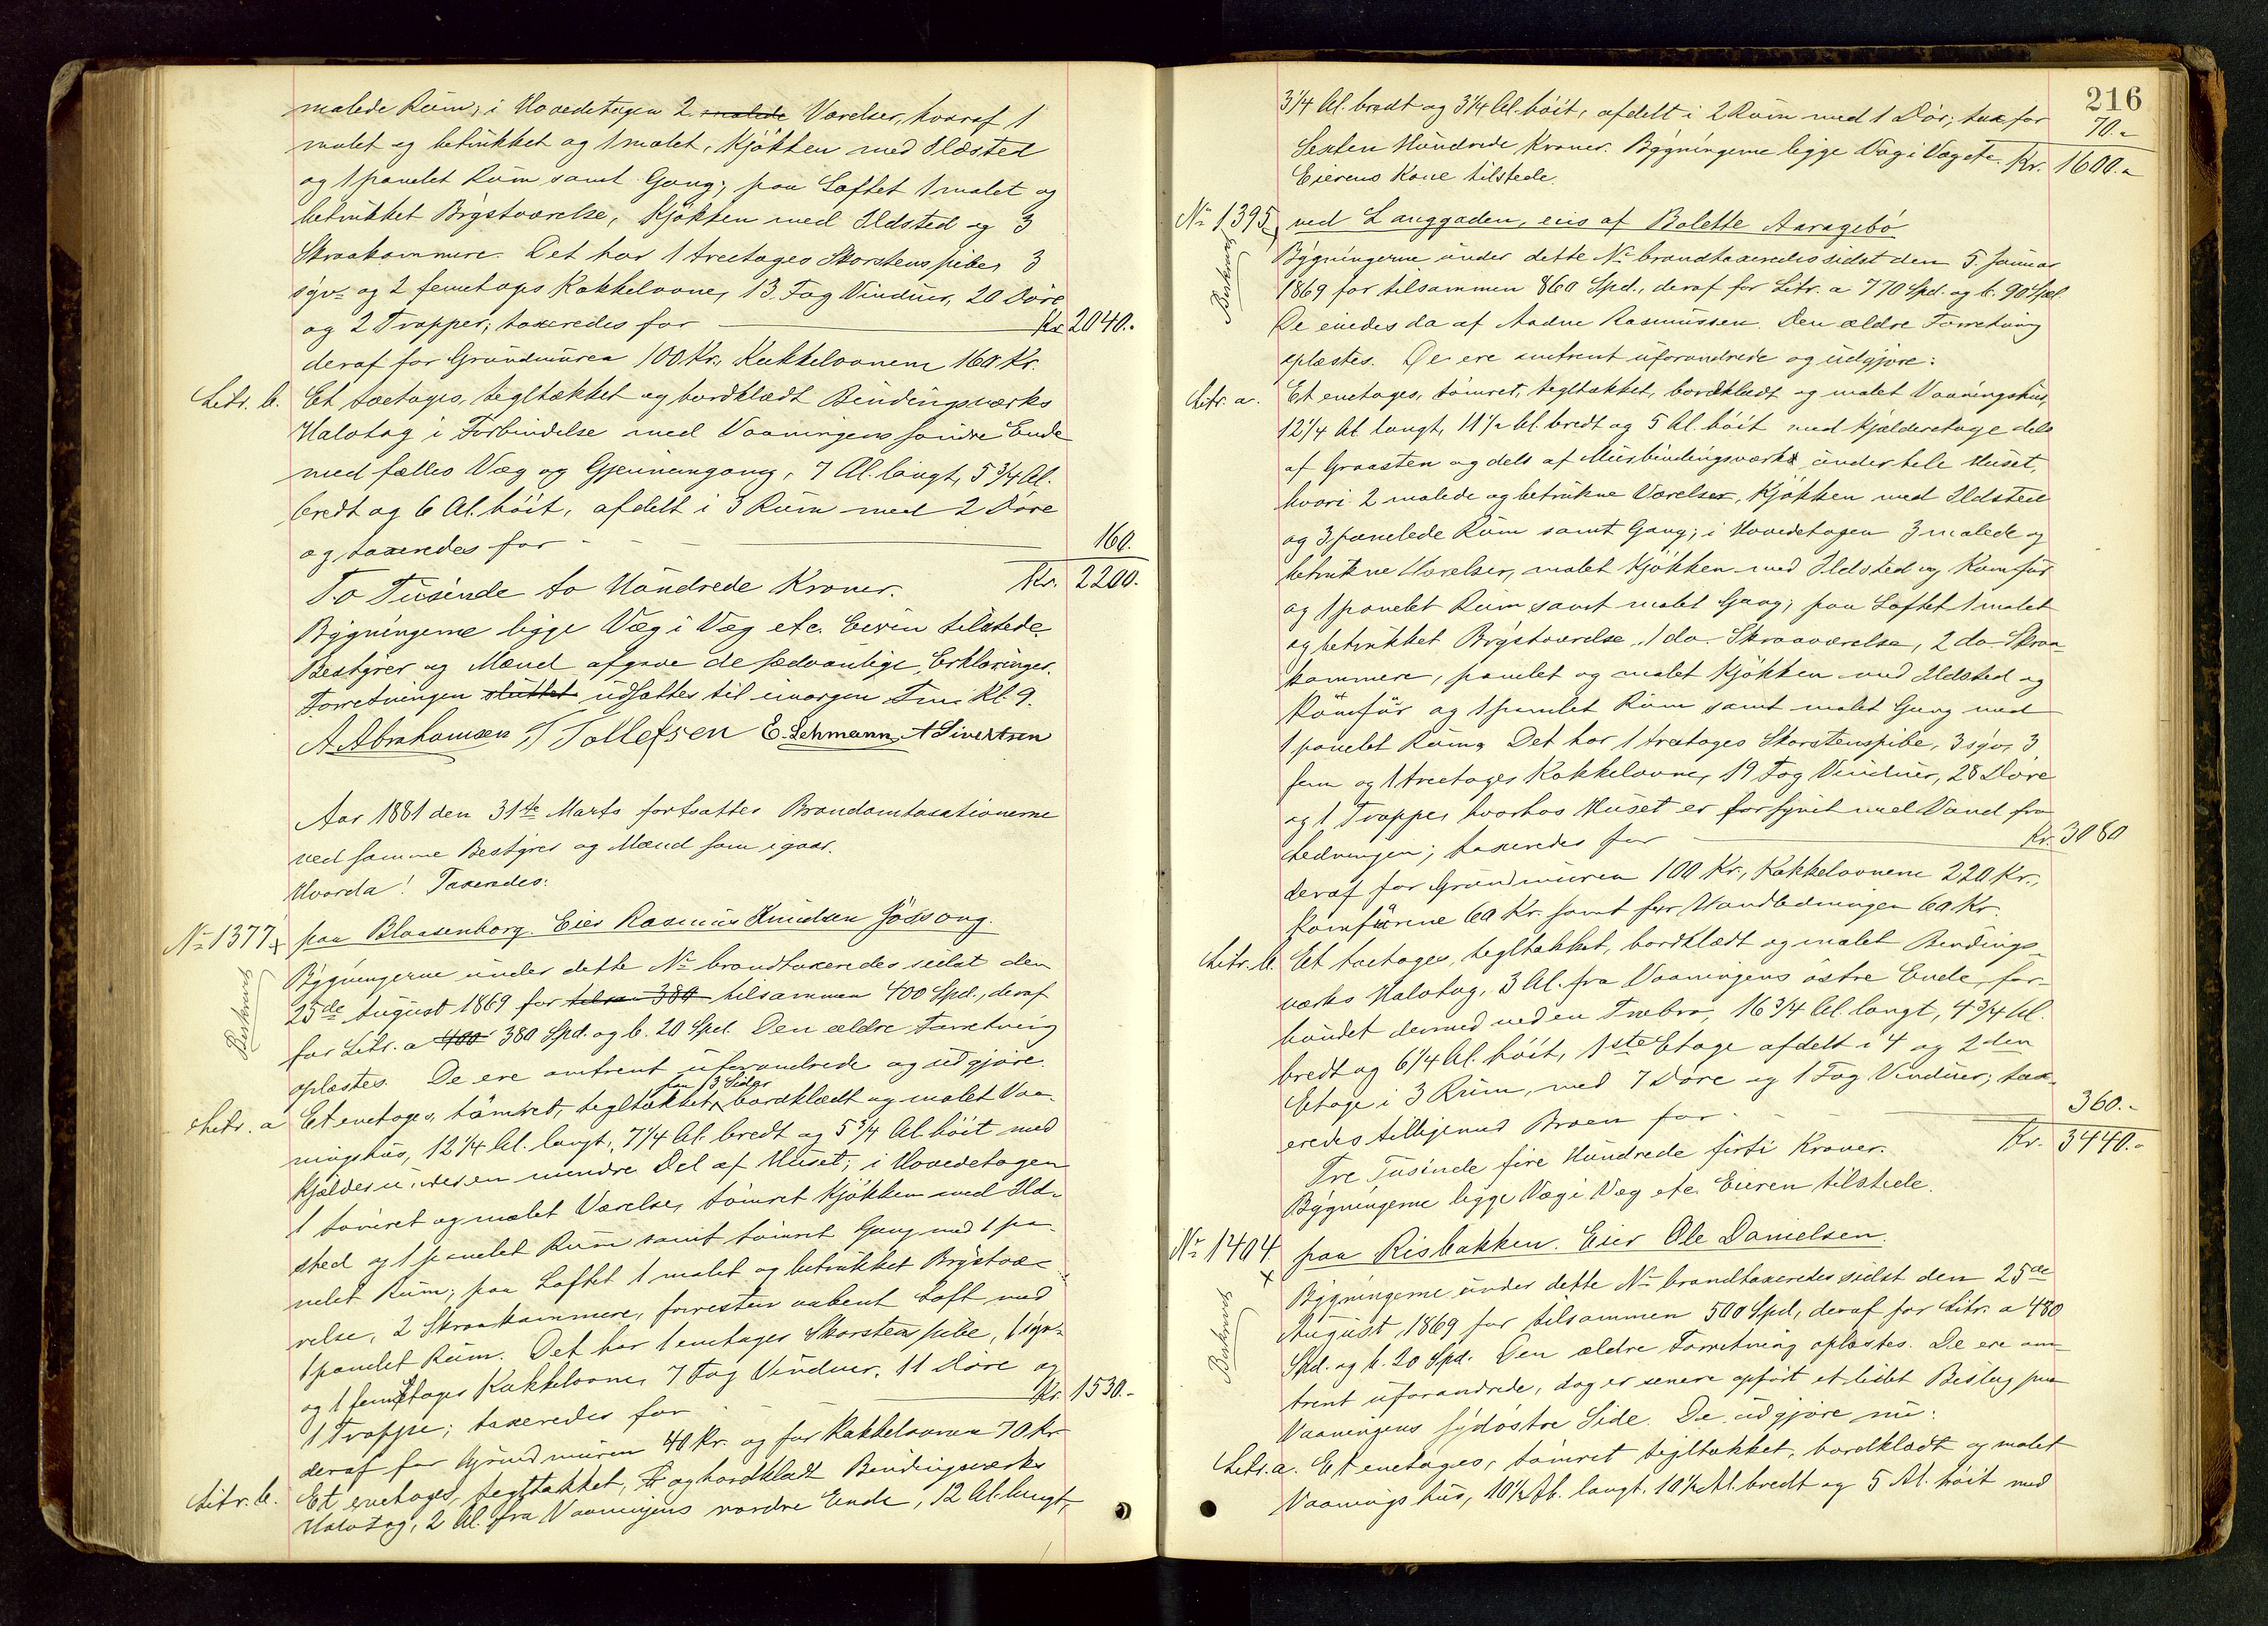 malede Rum; i Hovedetagen 2 malede Værelser, hvoraf 1
malet og betrukket og 1 malet, Kjøkken med Ildsted
og 1 panelet Rum samt Gang; paa Loftet 1 malet og
betrukket Brystværelse, Kjøkken med Ildsted og 3
Skraakammere. Det har 1 treetages Skorstenspibe, 3
syv- og 2 femetages Kakkelovne, 13 Fag Vinduer, 20 Døre
og 2 Trapper; taxeredes for Kr. 2040.-
deraf for Grundmuren 100 Kr., Kakkelovnene 160 Kr.
Litr. b. Et toetages, tegltækket og bordklædt Bindingsværks
Halvtag i Forbindelse med Vaaningens søndre Ende
med fælles Væg og Gjennemgang, 7 Al. langt, 5 3/4 Al.
bredt og 6 Al. høit, afdelt i 3 Rum med 2 Døre
og taxeredes for 160.
To Tusinde to Hundrede Kroner. Kr. 2200.
Bygningerne ligge Væg i Væg etc. Eieren tilstede.
Bestyrer og Mænd afgave de sædvanlige Erklæringer.
Forretningen sluttet udsattes til imorgen Fm. Kl. 9.
A. Abrahamsen T Tollefsen E. Lehmann, A Sivertsen
Aar 1881 den 31te Marts fortsattes Brandomtaxationerne
ved samme Bestyrer og Mænd som igaar.
Hvorda! Taxeredes:
No 1377 x paa Blaasenborg. Eier Rasmus Knudsen Jössang.
Bygningerne under dette No brandtaxeredes sidst den
25de August 1869 for tilsam 380 tilsammen 400 Spd., deraf
for Litr. a 400 380 Spd. og b. 20 Spd. Den ældre Forretning
oplæstes. De ere omtrent uforandrede og udgjøre.
paa 3 Sider
Litr. a Et enetages, tømret, tegltækket, bordklædt og malet Vaa-
ningshus, 12 1/4 Al. langt, 7 1/4 Al. bredt og 5 3/4 Al. höit med
Kjælder under en mindre Del af Huset; i Hovedetagen
1 tømret og malet Værelse, tømret Kjøkken med Ild-
sted og 1 panelet Rum samt tømret Gang med 1 pa-
nelet Rum; paa Loftet 1 malet og betrukket Brystvæ-
relse, 2 Skraakammere, forresten aabent Loft med
1 panelet Rum. Det har 1 enetages Skorstenspibe, 1 syv-
og 1 femetages Kakkelovne, 7 Fag Vinduer, 11 Døre og
1 Trappe; taxeredes for Kr. 1530.-
deraf for Grundmuren 40 Kr. og for Kakkelovnen 70 Kr.
Litr. b. Et enetages, tegltækket, og bordklædt Bindingsværks
Halvtag, 2 Al. fra Vaaningens nordre Ende, 12 Al. langt,
216
3 1/4 Al. bredt og 3 1/4 Al. höit, afdelt i 2 Rum med 1 Dör; tax. for 70.-
Sexten Hundrede Kroner. Bygningerne ligge Væg i Væg etc. Kr. 1600.-
Eierens Kone tilstede.
No 1395 x ved Langgaden, eies af Bolette Aaragebö
Bygningerne under dette No brandtaxeredes sidst den 5. Januar
1869 for tilsammen 860 Spd., deraf for Litr. a 770 Spd. og b. 90 Spd.
De eiedes da af Aadne Rasmussen. Den ældre Forretning
oplæstes. De ere omtrent uforandrede og udgjøre:
Litr. a. Et enetages, tömret, tegltækket, bordklædt og malet Vaaningshus,
12 1/4 Al. langt, 11 1/2 Al. bredt og 5 Al. höit med Kjælderetage dels
af Graasten og dels af Murbindingsværk under hele Huset,
hvori 2 malede og betrukne Værelser, Kjøkken med Ildsted
og 3 panelede Rum samt Gang; i Hovedetagen 3 malede og
betrukne Værelser, malet Kjøkken med Ildsted og Komfur
og 1 panelet Rum samt malet Gang; paa Loftet 1 malet
og betrukket Brystværelse, 1 do. Skraaværelse, 2 do. Skraa-
kammere, panelet og malet Kjøkken med Ildsted og
Komfur og 1 panelet Rum samt malet Gang med
1 panelet Rum. Det har 1 treetages Skorstenspibe, 3 syv, 3
fem og 1 treetages Kakkelovne, 19 Fag Vinduer, 28 Døre
og 1 Trappe, hvorhos Huset er forsynet med Vand fra
Ledningen; taxeredes for Kr. 3080
deraf for Grundmuren 100 Kr., Kakkelovnene 220 Kr.,
Komfurene 60 Kr. samt for Vandledningen 60 Kr.
Litr. b. Et toetages, tegltækket, bordklædt og malet Bindings-
værks Halvtag, 3 Al. fra Vaaningens østre Ende, for-
bundet dermed ved en Træbro, 16 3/4 Al. langt, 4 3/4 Al.
bredt og 6 1/4 Al. höit, 1ste Etage afdelt i 4 og 2den
Etage i 3 Rum, med 7 Døre og 1 Fag Vinduer; tax-
eredes tilligemed Broen for 360.-
Tre Tusinde fire Hundrede firti Kroner. Kr. 3440.-
Bygningerne ligge Væg i Væg etc. Eieren tilstede.
No 1404 x paa Risbakken. Eier Ole Danielsen.
Bygningerne under dette No brandtaxeredes sidst den 25de
August 1869 for tilsammen 500 Spd., deraf for Litr. a 480
Spd. og b. 20 Spd. Den ældre Forretning oplæstes. De ere om-
trent uforandrede, dog er senere opfört et lidet Bislag paa
Vaaningens sydöstre Side. De udgjøre nu:
Litr. a. Et enetages, tömret tegltækket, bordklædt og malet
Vaaningshus, 10 1/2 Al. langt, 10 1/2 Al. bredt og 5 Al. höit med